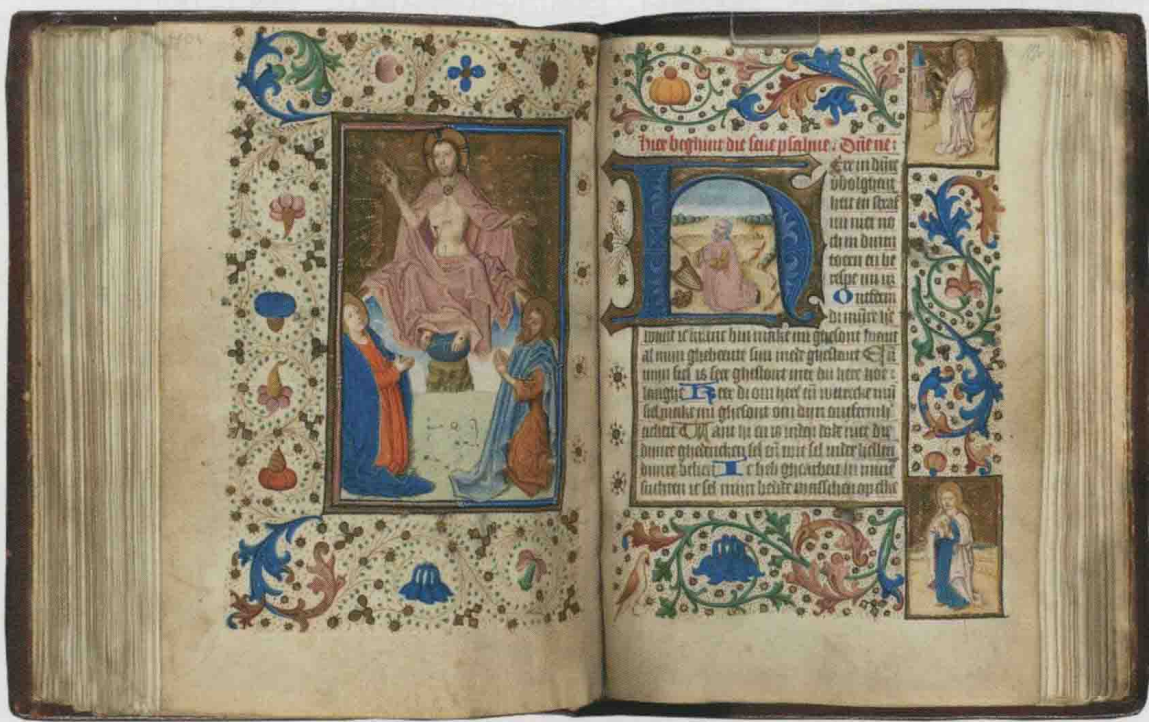 hier beghint die seue psalme. Dñe ne:
H Ere in dijnre
vbolghent
heit en straf
mi niet no
ch in dinen
toern en be
rispe mi nz
Ontferm
di mijnre he
want ic kranc bin make mi ghesont want
al mijn ghebeente sijn mede ghestoert Eñ
mijn siel is seer ghestoert mer du here hoe
langhe Keer di om heer eñ verwecke mijn
siel make mi ghesont om dijn ontfermh'
ticheit Want hi en is inden dode niet die
dijnre ghedencken sel eñ wie sel inder hellen
dijnre belien Ic heb ghearbeit in mine
suchten ic sel mijn bedde wasschen op elke